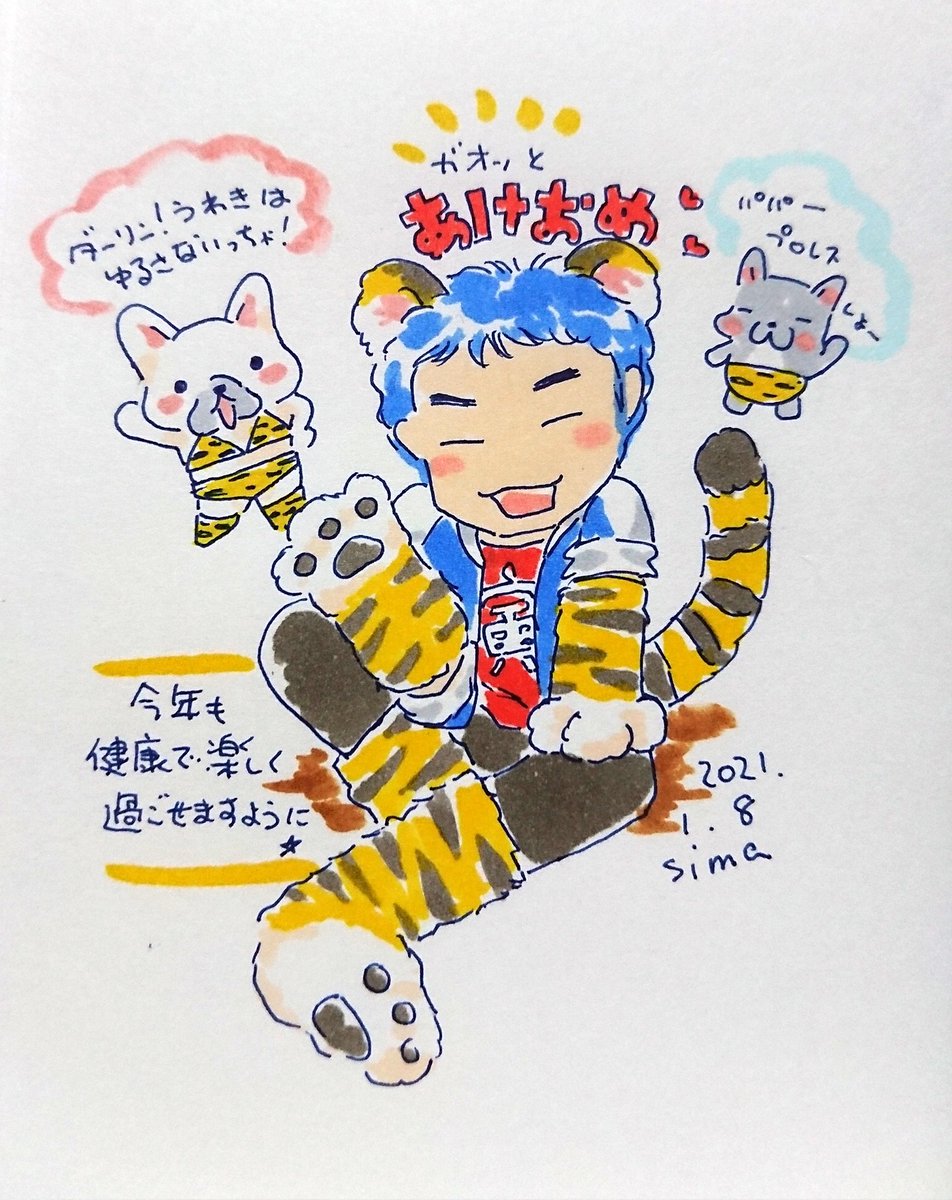 ガオッと
あけおめ
ダーリン!うわきは
ゆるさないっちゃ!
パパー
プロレス
しよー
今年も
健康で楽しく
過ごせますように
2021.
1.8
sima